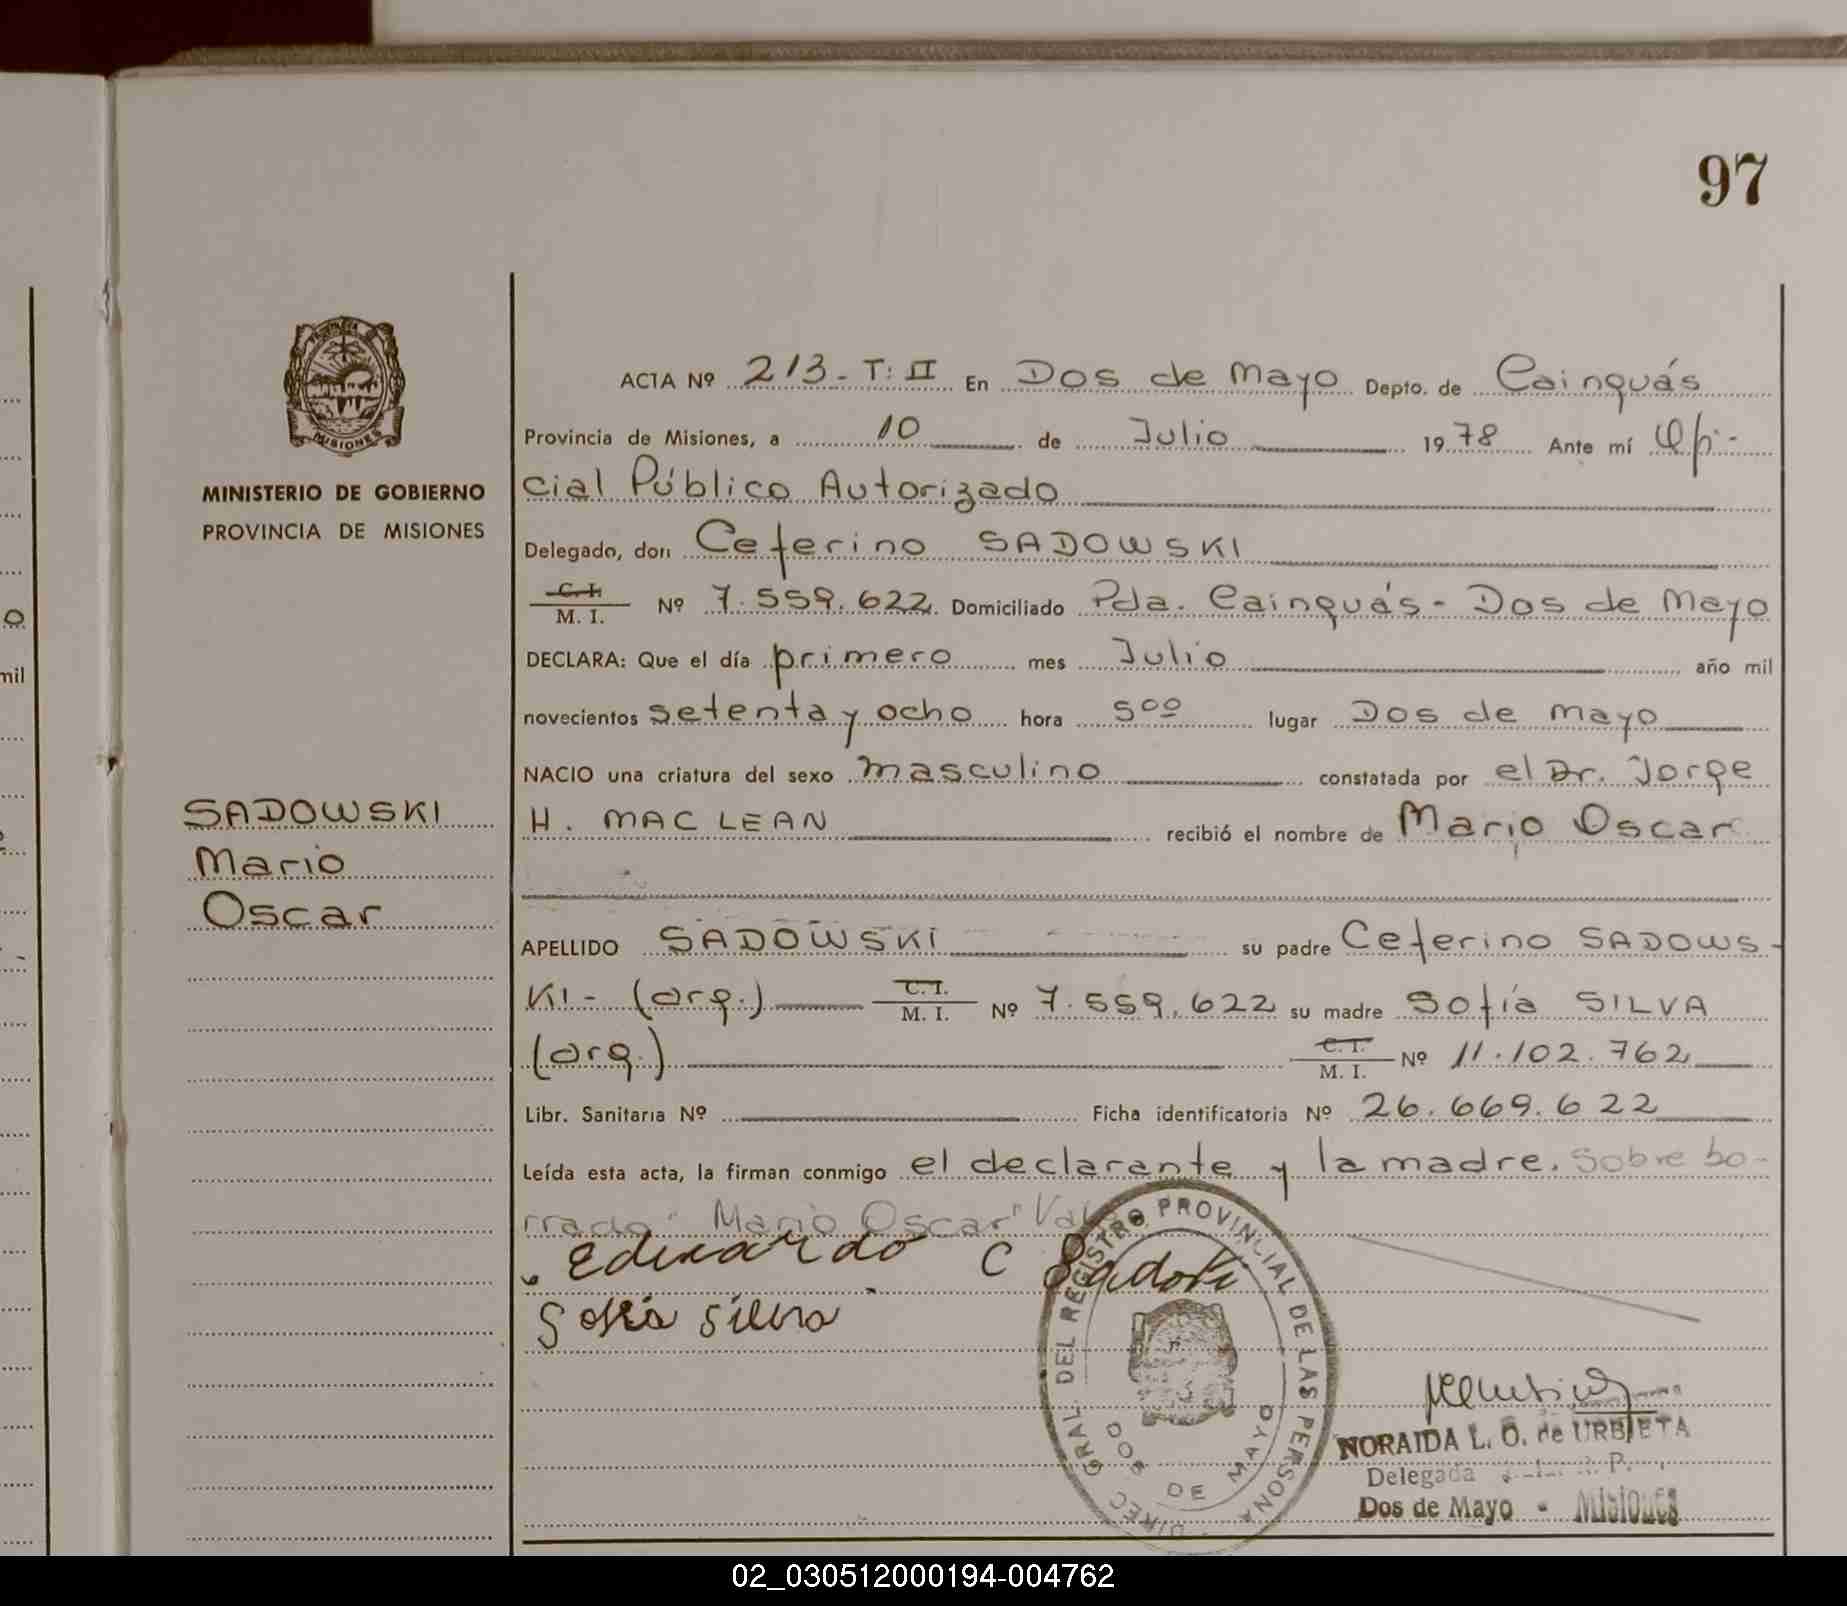 97
PROVINCIA DE MISIONES
MINISTERIO DE GOBIERNO
PROVINCIA DE MISIONES
SADOWSKI
Mario
Oscar
ACTA Nº 213 - T: II En Dos de Mayo Depto. de Cainguás
Provincia de Misiones, a 10 de Julio 1978 Ante mí Ofi-
cial Público Autorizado
Delegado, don Ceferino SADOWSKI
C. I. / M. I. Nº 7.559.622 Domiciliado Pda. Cainguás - Dos de Mayo
DECLARA: Que el día primero mes Julio año mil
novecientos setenta y ocho hora 5ºº lugar Dos de Mayo
NACIO una criatura del sexo masculino constatada por el Dr. Jorge
H. MAC LEAN recibió el nombre de Mario Oscar
APELLIDO SADOWSKI su padre Ceferino SADOWS-
KI - (arg.) C. I. / M. I. Nº 7.559.622 su madre Sofía SILVA
(arg.) C. I. / M. I. Nº 11.102.762
Libr. Sanitaria Nº Ficha identificatoria Nº 26.669.622
Leída esta acta, la firman conmigo el declarante y la madre. Sobre bo-
rrado "Mario Oscar" Vale
Eduardo C Sadoski
Sofia Silva
DIREC. GRAL. DEL REGISTRO PROVINCIAL DE LAS PERSONAS
DOS DE MAYO
NORAIDA L. O. de URBIETA
Delegada R. P.
Dos de Mayo - Misiones
o
mil
02_030512000194-004762